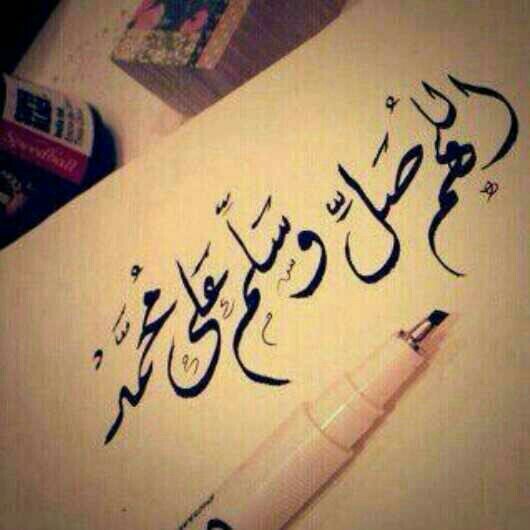 اللهم صَلِّ وسَلِّم عَلى مُحمَّد
Speedball